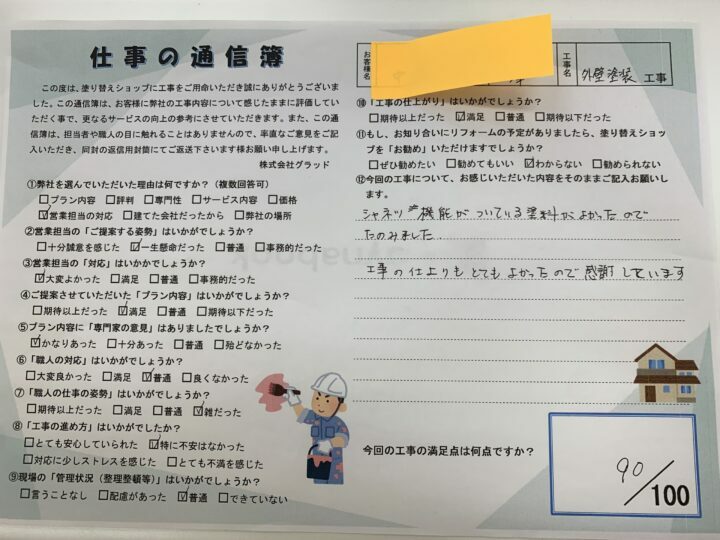 仕事の通信簿
この度は、塗り替えショップに工事をご用命いただき誠にありがとうございま
した。この通信簿は、お客様に弊社の工事内容について感じたままに評価していた
だく事で、更なるサービスの向上の参考にさせていただきます。また、この通
信簿は、担当者や職人の目に触れることはありませんので、率直なご意見をご記
入いただき、同封の返信用封筒にてご返送下さいます様お願い申し上げます。
株式会社グラッド
①弊社を選んでいただいた理由は何ですか?(複数回答可)
□プラン内容 □評判 □専門性 □サービス内容 □価格
☑営業担当の対応 □建てた会社だったから □弊社の場所
②営業担当の「ご提案する姿勢」はいかがでしょうか?
□十分誠意を感じた ☑一生懸命だった □普通 □事務的だった
③営業担当の「対応」はいかかででしょうか?
☑大変よかった □満足 □普通 □事務的だった
④ご提案させていただいた「プラン内容」はいかがでしょうか?
□期待以上だった ☑満足 □普通 □期待以下だった
⑤プラン内容に「専門家の意見」はありましたでしょうか?
☑かなりあった □十分あった □普通 □殆どなかった
⑥「職人の対応」はいかがでしょうか?
□大変良かった □満足 ☑普通 □良くなかった
⑦「職人の仕事の姿勢」はいかがでしょうか?
□期待以上だった □満足 □普通 ☑雑だった
⑧「工事の進め方」はいかがでしたか?
□とても安心していられた ☑特に不安はなかった
□対応に少しストレスを感じた □とても不満を感じた
⑨現場の「管理状況(整理整頓等)」はいかがでしょうか?
□言うことなし □配慮があった ☑普通 □できていない
お客様名
工事名
外壁塗装 工事
⑩「工事の仕上がり」はいかがでしょうか?
□期待以上だった ☑満足 □普通 □期待以下だった
⑪もし、お知り合いにリフォームの予定がありましたら、塗り替えショッ
プを「お勧め」いただけますでしょうか?
□ぜひ勧めたい □勧めてもいい ☑わからない □勧められない
⑫今回の工事について、お感じいただいた内容をそのままご記入お願いし
ます。
シャネツ機能がついている塗料がよかったので
たのみました
工事の仕上りもとてもよかったので感謝しています
今回の工事の満足点は何点ですか?
90/100